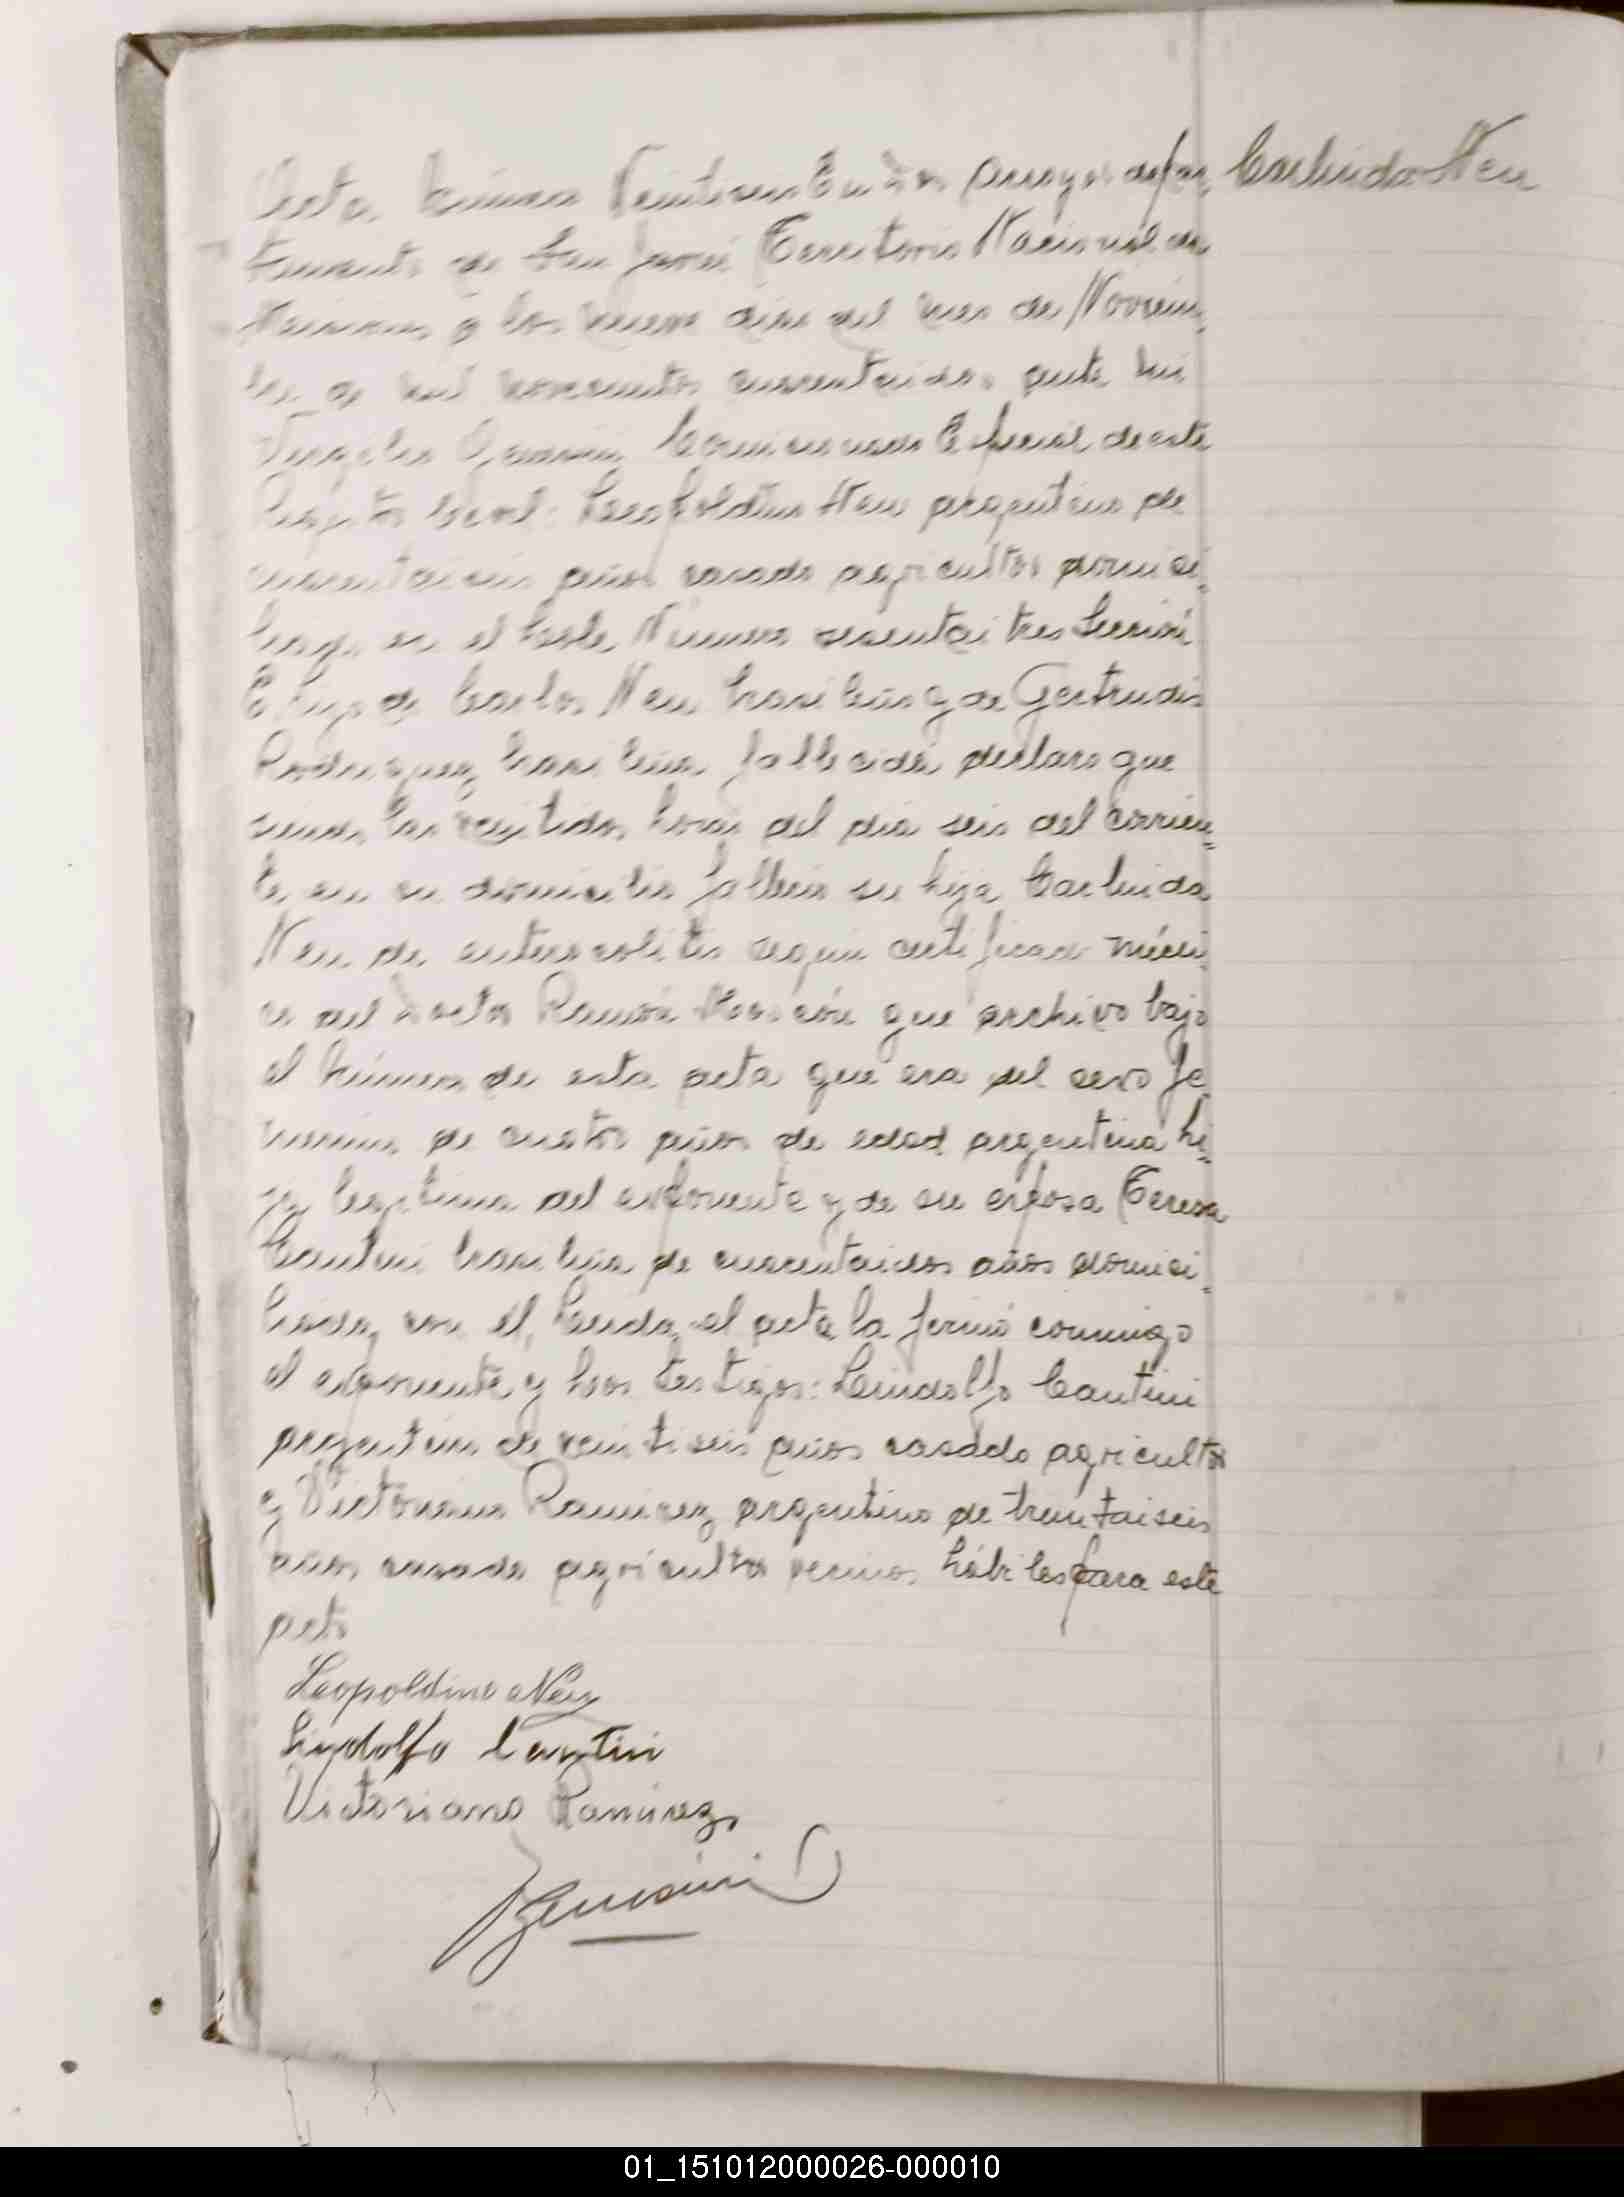 Acta Número Veintiseis En Dos Arroyos depar- Carlinda Neu
tamento de San Javier Territorio Nacional de
Misiones a los nueve dias del mes de Noviem-
bre de mil novecientos cuarentaidos ante mi
Comisionado Especial de este
Registro Civil: Leopoldino Neu argentino de
cuarentaiseis años casado agricultor domici-
liado en el Lote Número sesentaitres Sección
E hijo de Carlos Neu brasileño y de Gertrudis
Rodriguez brasileña fallecida declaro que
siendo las veintidos horas del dia seis del corrien-
te en su domicilio fallecio su hija Carlinda
Neu de enterocolitis según certificado médi-
co del Doctor Ramón que archivo bajo
el número de esta acta que era del sexo fe
menino de cuatro años de edad argentina hi-
ja legitima del exponente y de su esposa Teresa
Cantini brasileña de cuarentaidos años domici-
liada con él, Leida el acta la firmó conmigo
el exponente y los testigos: Lindolfo Cantini
argentino de veintiseis años casado agricultor
y Victoriano Ramirez argentino de treintaiseis
años casado agricultor vecinos hábiles para este
acto
Leopoldino Neu
Lindolfo Cantini
Victoriano Ramirez
01_151012000026-000010